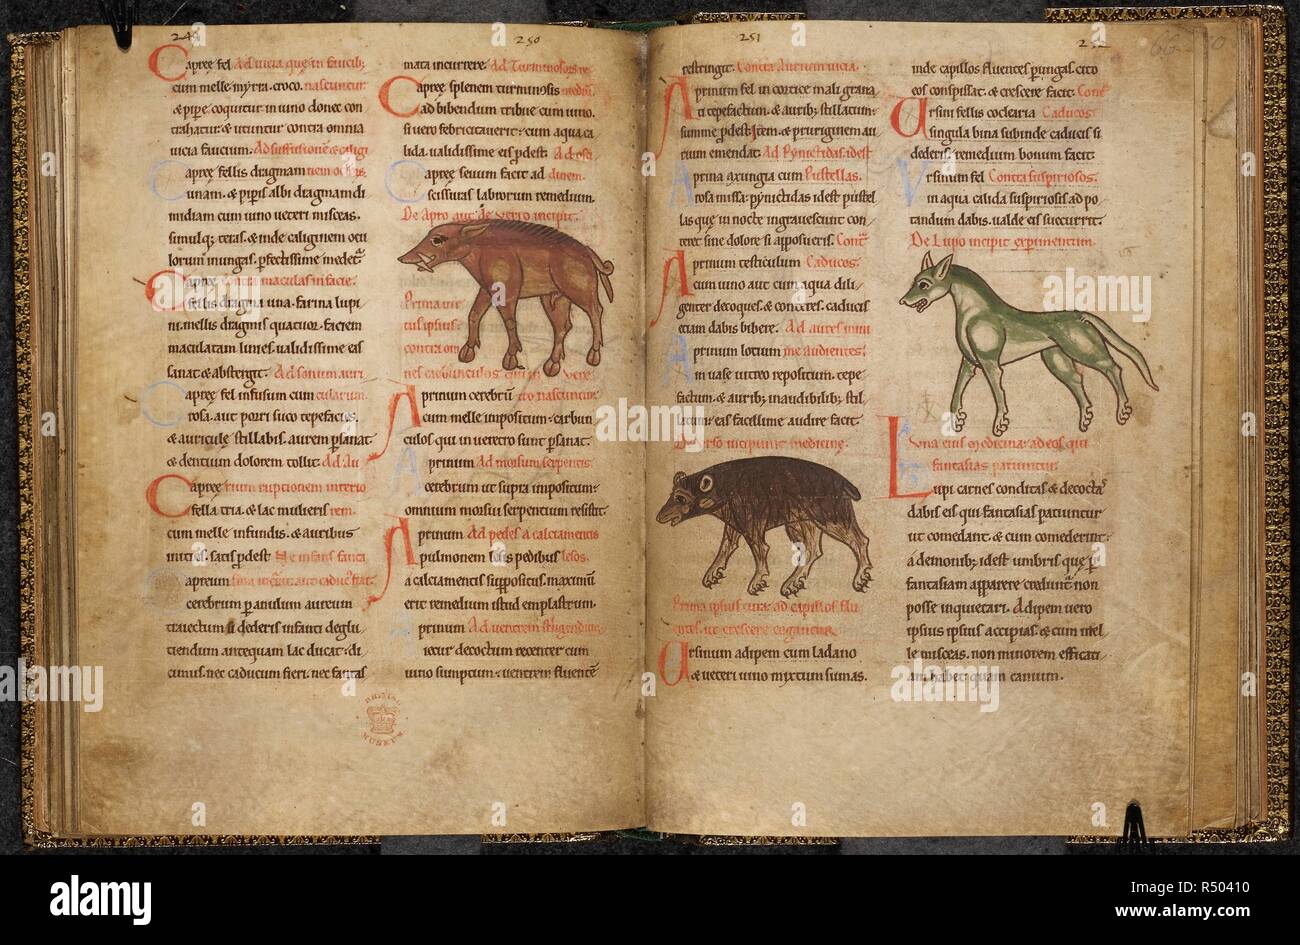 249
Capręę fel Ad uicia quę in faucib;
cum melle. myrra. croco. nascuntur
& pipe coquitur in uino donec con
trahatur. & utuntur contra omnia
uicia faucium. Ad suffusionē & caligi
Capręę fellis dragmam nem oculis.
unam. & pipis albi dragmam di
midiam cum uino ueteri misceas.
simulq; teras. & inde caliginem ocu
lorum inungas. pfectissime medet.
Capręę Contra maculas in facie.
fellis dragma una. farina lupi
ni. mellis dragmis quatuor. faciem
maculatam lunes. ualidissime eas
sanat & abstergit. Ad sonum auri
Capręę fel infusum cum cularum.
rosa. aut porri suco tepefactus.
& auriculę stillabis. aurem psanat
& dentium dolorem tollit. Ad au
Capręę rium ruptionem interio
fella tria. & lac mulieris rem.
cum melle infundis. & auribus
mittes. satis pdest. De infans fanta
Capreum sma
cerebrum p anulum aureum
traiectum si dederis infanti deglu
tiendum antequam lac ducat. di
cimus. nec caducum fieri. nec fantas
250
mata incurrere. Ad Turminosos re
Capręę splenem turminosis medium.
ad bibendum tribue cum uino.
si uero febricitauerit. cum aqua ca
lida. ualidissime eis pdest. Ad osci
Capręę seuum facit ad dinem.
scissuras labiorum remedium.
De Apro aut de Verro incipit.
Prima uir
tus ipsius.
contra om
nes carbunculos qui in Vere
Aprinum cerebrū tro nascuntur.
cum melle impositum. carbun
culos qui in ueretro sunt psanat.
Aprinum Ad morsum serpentis.
cerebrum ut supra impositum.
omnium morsui serpentium resistit.
Aprinum Ad pedes a calciamentis
pulmonem lesis pedibus lesos.
a calciamentis suppositus. maximū
erit remedium istud emplastrum.
Aprinum Ad uentrem stringendum.
iecur decoctum recenter cum
uino sumptum. uentrem fluentē
251
restringit. Contra Aurium uicia.
Aprinum fel in cortice mali grana
ti tepefactum. & aurib; stillatum.
summe pdest. Item. & pruriginem au
rium emendat. Ad Pynictidas. idest
Aprina axungia cum Pustellas.
rosa missa. pynictidas idest pustel
las quę in nocte ingrauescunt con
teret sine dolore si apposueris. Cont
Aprinum testiculum Caducos.
cum uino aut cum aqua dili
genter decoques. & conteres. caducis
etiam dabis bibere. Ad aures mini
Aprinum lotium me audientes.
in uase uitreo repositum. tepe
factum. & aurib; inaudibilib; stil
latum. eas facillime audire facit.
De Urso incipiunt medicinę.
Prima ipsius cura. ad capillos flu
entes. ut crescere cogantur.
Ursinum adipem cum ladano
& ueteri uino mixtum sumas.
252
inde capillos fluentes pungas. cito
eos conspissat. & crescere facit. Cont
Ursini fellis coclearia Caducos.
singula bina subinde caducis si
dederis. remedium bonum facit.
Ursinum fel Contra suspiriosos.
in aqua calida suspiriosis ad po
tandum dabis. ualde ei succurrit.
De Lupo incipit experimentum.
Una eius medicina. ad eos qui
fantasias patiuntur.
Lupi carnes conditas & decoctas
dabis eis qui fantasias patiuntur
ut comedant. & cum comederint.
a demonib; idest umbris quę p
fantasiam apparere credunt. non
posse inquietari. Adipem uero
ipsius ipsius accipias. & cum mel
le misceas. non minorem efficati
am habet. quam canium.
BRITISH MUSEUM
alamy
Image ID: R50410
www.alamy.com